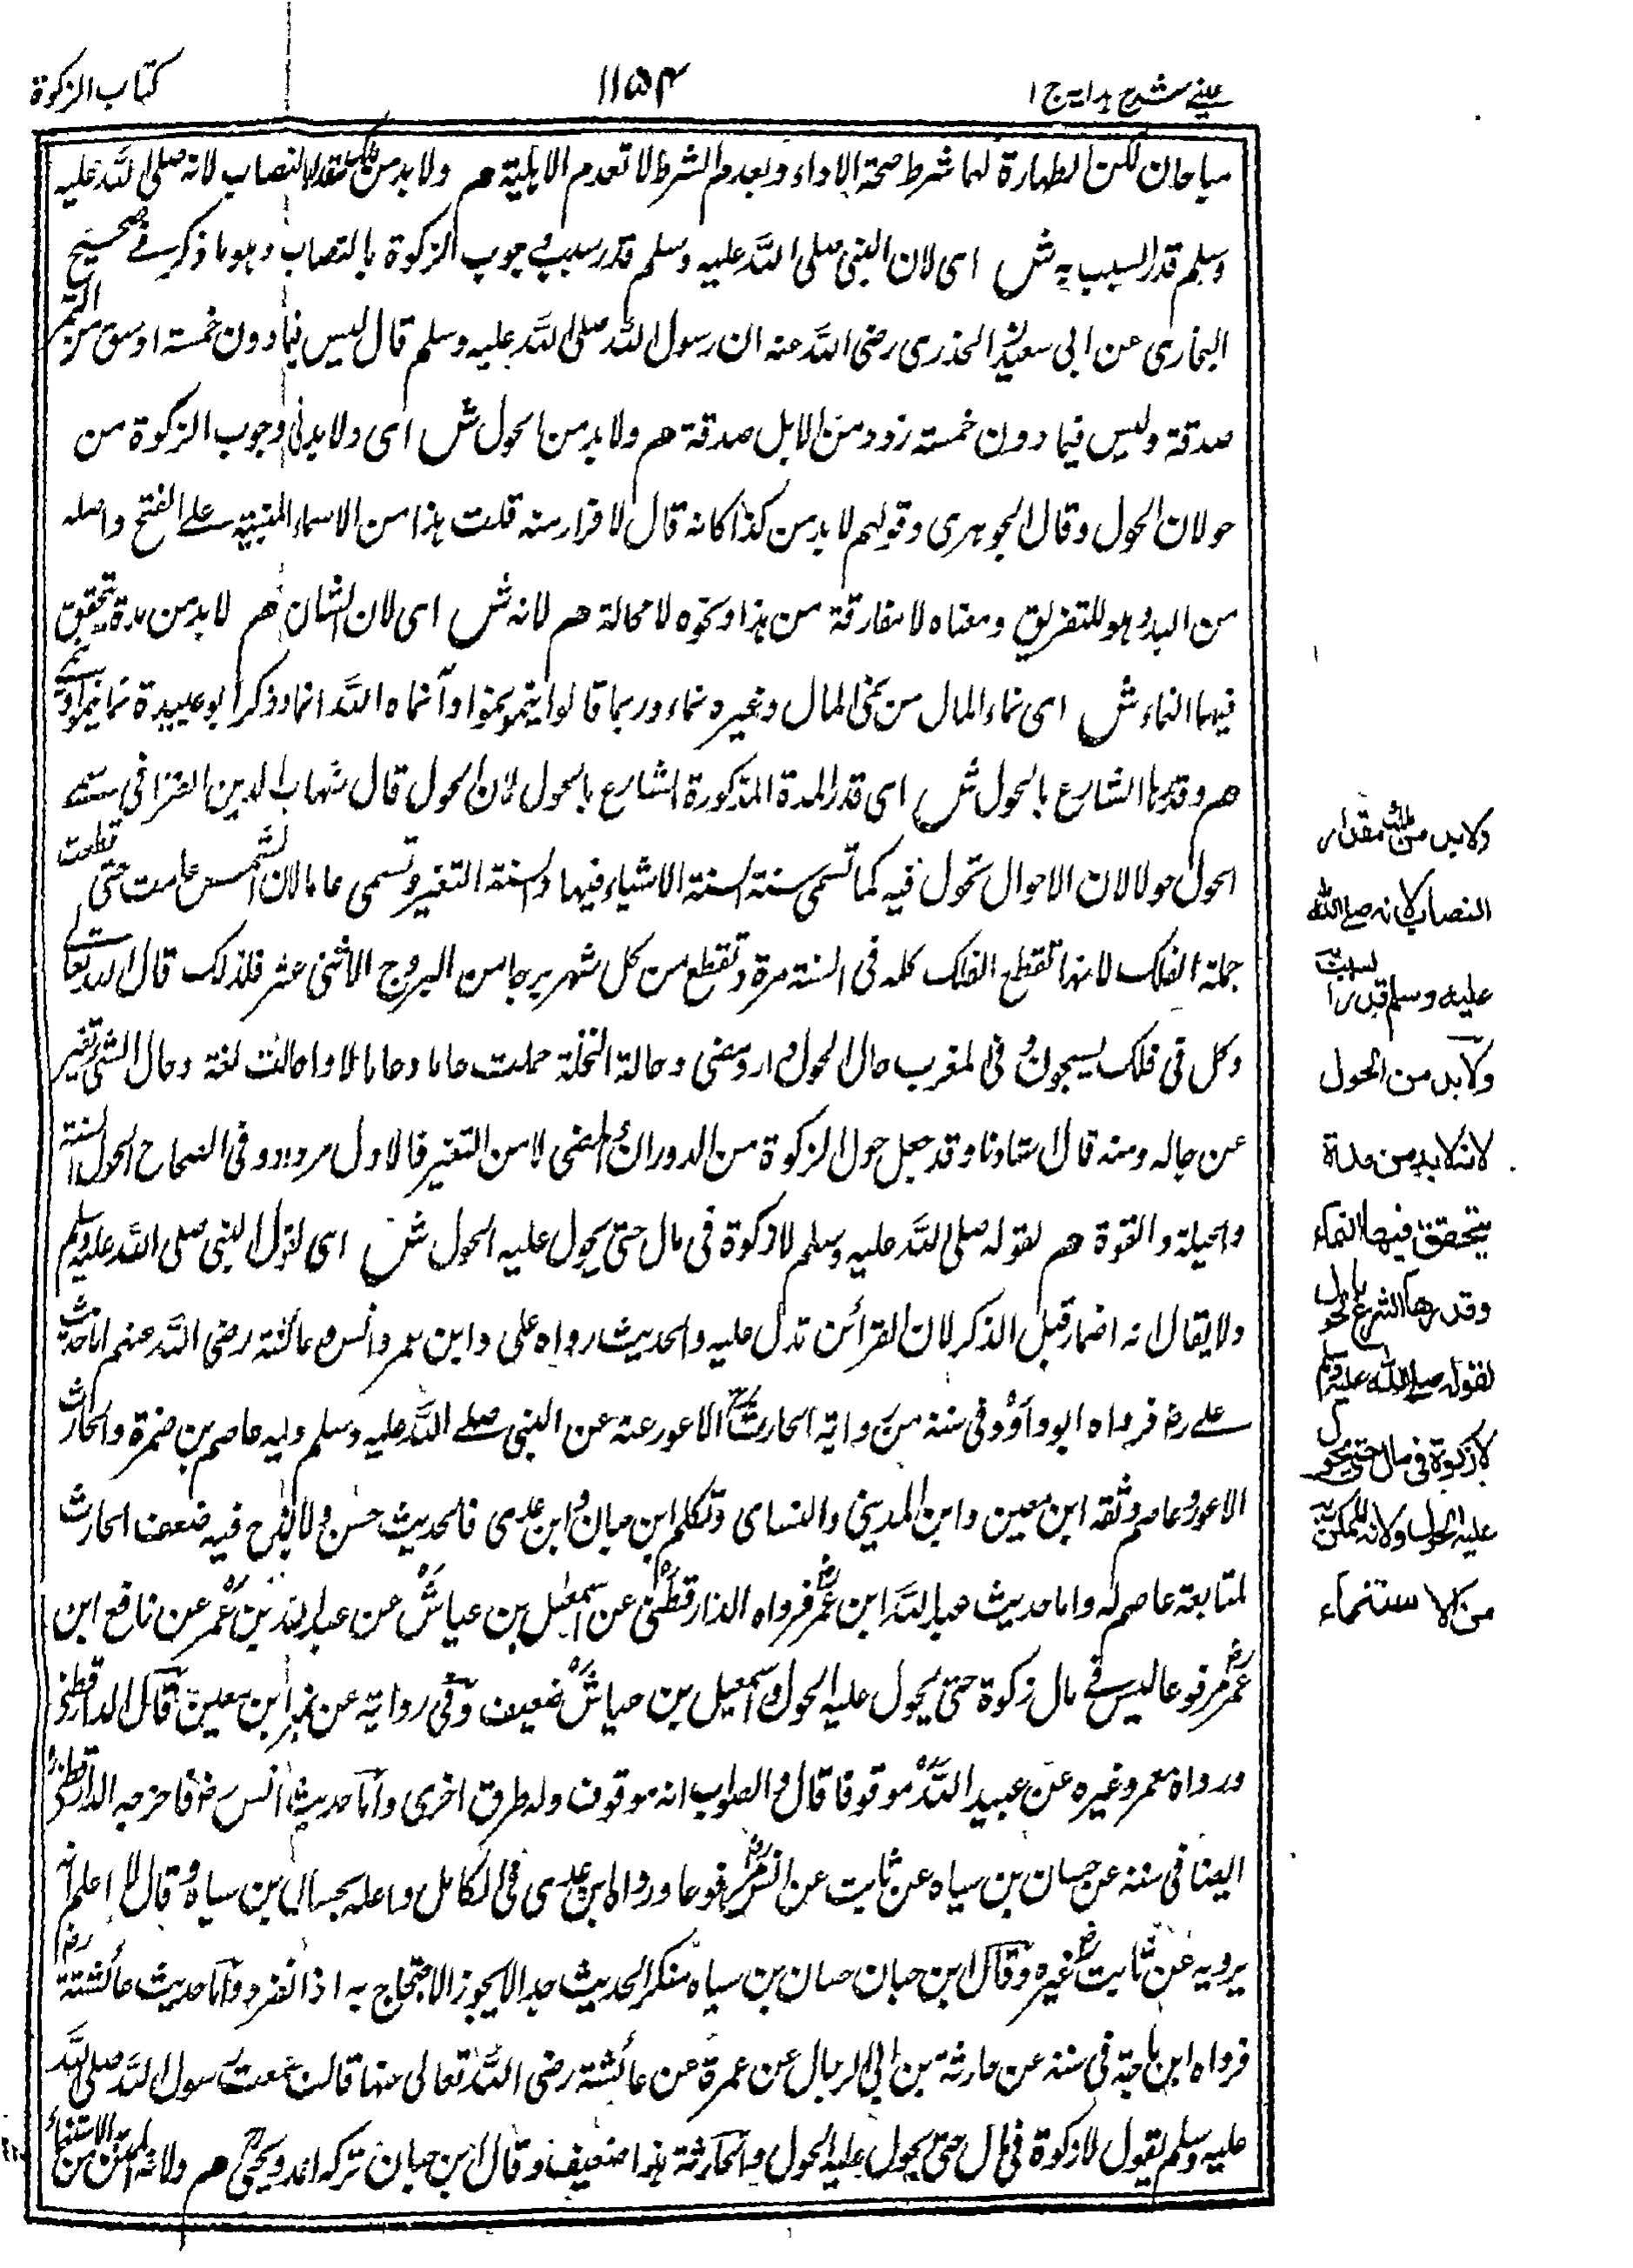 عینی شرح ہدایہ ج ١
١١٥٤
کتاب الزکوة
مباحان لکن الطهارة لهما شرط صحة الاداء وبعدم الشرط لا تعدم الاهلية هم ولا بد من ملك مقدار النصاب لانه صلى الله عليه
وسلم قدر السبب به ش اى لان النبي صلى الله عليه وسلم قدر سبب وجوب الزكوة بالنصاب وهو ما ذكر فى صحيح
البخارى عن ابى سعيد الخدرى رضى الله عنه ان رسول الله صلى الله عليه وسلم قال ليس فيما دون خمسة اوسق من التمر
صدقة وليس فيما دون خمسة زود من الابل صدقة هم ولا بد من الحول ش اى ولا بد فى وجوب الزكوة من
حولان الحول وقال الجوهرى وقولهم لا بد من كذا كانه قال لا فرار منه قلت هذا من الاسماء المبنية على الفتح واصله
من البد وهو للتفريق ومعناه لا مفارقة من هذا ونحوه لا محالة هم لانه ش اى لان الشان هم لا بد من مدة يتحقق
فيها النماء ش اى نماء المال من نمى المال وغيره نماء وربما قالوا ينمو نموا وأنماه الله انماء وذكر ابو عبيدة نما ينمو
هم وقدرها الشارع بالحول ش اى قدر المدة المذكورة الشارع بالحول لان الحول قال شهاب الدين القرافى سمى
الحول حولا لان الاحوال تحول فيه كما تسمى سنة لسنة الاشياء فيها والسنة التغير وتسمى عاما لان الشمس عامت حتى قطعت
جملة الفلك لانها تقطع الفلك كله فى السنة مرة وتقطع من كل شهر برجا من البروج الاثنى عشر فلذلك قال الله تعالى
وكل فى فلك يسبحون وفى المغرب حال الحول دار ومضى وحالة النخلة حملت عاما وعاما لا واحالت لغة وحال الشئ تغير
عن حاله ومنه قال استادنا وقد جعل حول الزكوة من الدوران والمضى لا من التغير فالاول مردود وفى الصحاح الحول السنة
والحيلة والقوة هم لقوله صلى الله عليه وسلم لا زكوة فى مال حتى يحول عليه الحول ش اى لقول النبي صلى الله عليه وسلم
ولا يقال انه اضمار قبل الذكر لان القرائن تدل عليه والحديث رواه على وابن عمر وانس وعائشة رضى الله عنهم اما حديث
على رض فرواه ابو داؤد فى سننه من رواية الحارث الاعور عنه عن النبى صلے الله عليه وسلم وفيه عاصم بن ضمرة والحارث
الاعور وعاصم وثقه ابن معين وابن المدينى والنساى وتكلم ابن حبان وابن عدى فالحديث حسن ولا يقدح فيه ضعف الحارث
لمتابعة عاصم له واما حديث عبد الله ابن عمر فرواه الدارقطنى عن اسمعيل بن عياش عن عبيد الله بن عمر عن نافع ابن
عمر مرفوعا ليس فے مال زكوة حتى يحول عليه الحول واسمعيل بن عياش ضعيف وفى رواية عن ابن معين قال الدارقطنى
ورواه معمر وغيره عن عبيد الله موقوفا قال والصواب انه موقوف وله طرق اخرى واما حديث انس رض فاخرجه الدارقطنى
ايضا فى سننه عن حسان بن سياه عن ثابت عن انس مرفوعا ورواه ابن عدى فى الكامل واعله بحسان بن سياه وقال لا اعلم انه
يرويه عن ثابت غيره وقال ابن حبان حسان بن سياه منكر الحديث جدا لا يجوز الاحتجاج به اذا انفرد واما حديث عائشة رض
فرواه ابن ماجة فى سننه عن حارثة بن ابى الرجال عن عمرة عن عائشة رضى الله تعالى عنها قالت سمعت رسول الله صلى الله
عليه وسلم يقول لا زكوة فى مال حتى يحول عليه الحول والحارثة هذا ضعيف وقال ابن حبان تركه احمد ويحيى هم ولانه الممكن من الاستنماء
ولابد من ملك مقدار
النصاب لانه صلے الله
عليه وسلم قدر السبب به
ولابد من الحول
لانه لابد من مدة
يتحقق فيها النماء
وقدرها الشرع بالحول
لقوله صلے الله عليه وسلم
لا زكوة فى مال حتى يحول
عليه الحول ولانه الممكن به
من الاستنماء